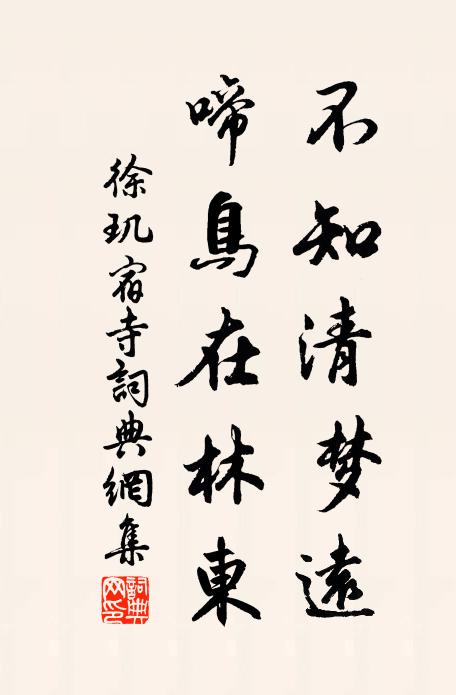 不知清梦遠
啼鳥在林東
徐玑宿寺詞典網集
詞典网印